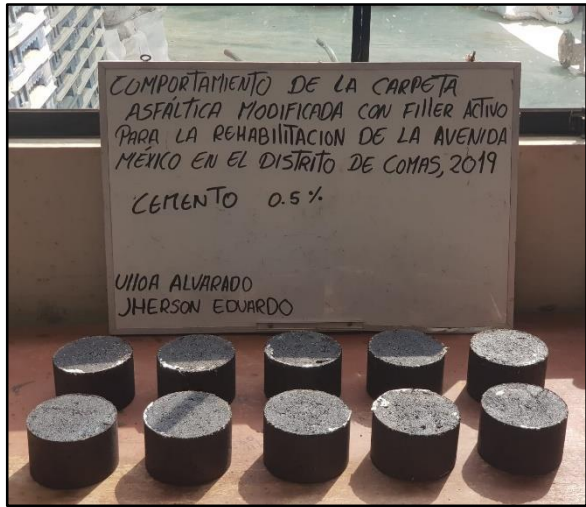 COMPORTAMIENTO DE LA CARPETA
ASFÁLTICA MODIFICADA CON FILLER ACTIVO
PARA LA REHABILITACION DE LA AVENIDA
MÉXICO EN EL DISTRITO DE COMAS, 2019
CEMENTO 0.5%
UllOA ALVARADO
JHERSON EDUARDO